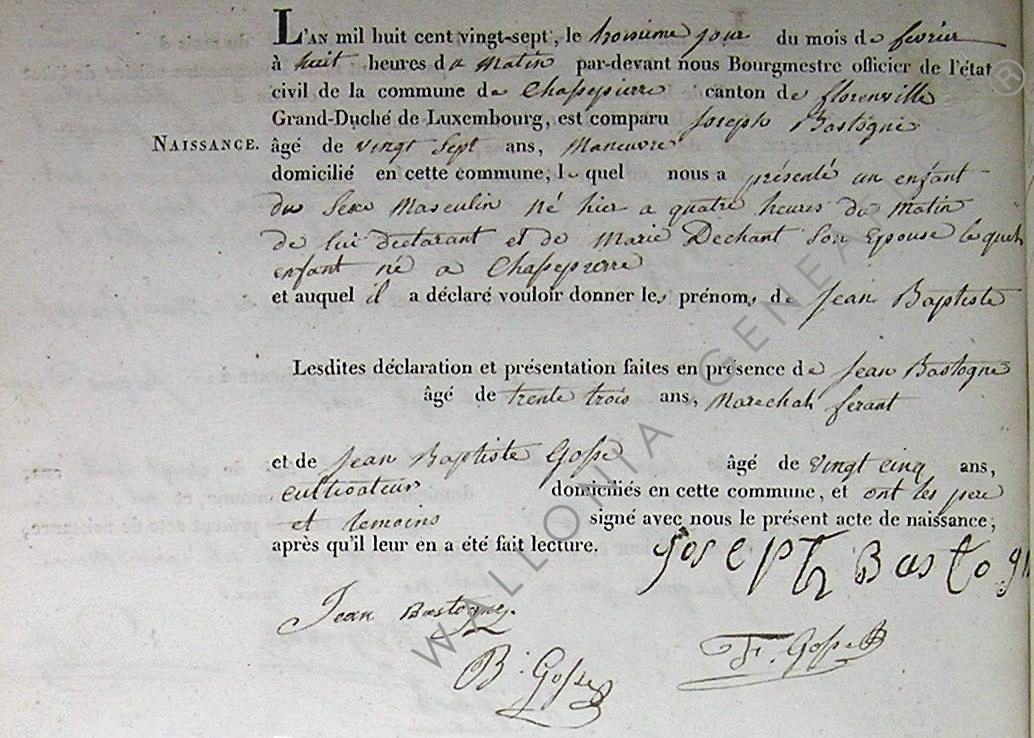 L'AN mil huit cent vingt-sept, le troisieme jour du mois de février
à huit heures du Matin par-devant nous Bourgmestre officier de l'état
civil de la commune de Chassepierre canton de florenville
Grand-Duché de Luxembourg, est comparu Joseph Bastogne
NAISSANCE. âgé de vingt sept ans, Maneuvre
domicilié en cette commune, le quel nous a présenté un enfant
du Sexe Masculin né hier a quatre heures du Matin
de lui declarant et de Marie Dechant Son Epouse le quel
enfant né a Chassepierre
et auquel il a déclaré vouloir donner les prénoms de Jean Baptiste
Lesdites déclaration et présentation faites en présence de Jean Bastogne
âgé de trente trois ans, Marechal ferant
et de Jean Baptiste Gosse âgé de vingt cinq ans,
cultivateur domiciliés en cette commune, et ont les pere
et temoins signé avec nous le présent acte de naissance,
après qu'il leur en a été fait lecture. Joseph Bastogn
Jean Bastogne
B. Gosse F. Gosse B
WALLONIA GENEALOGY ®